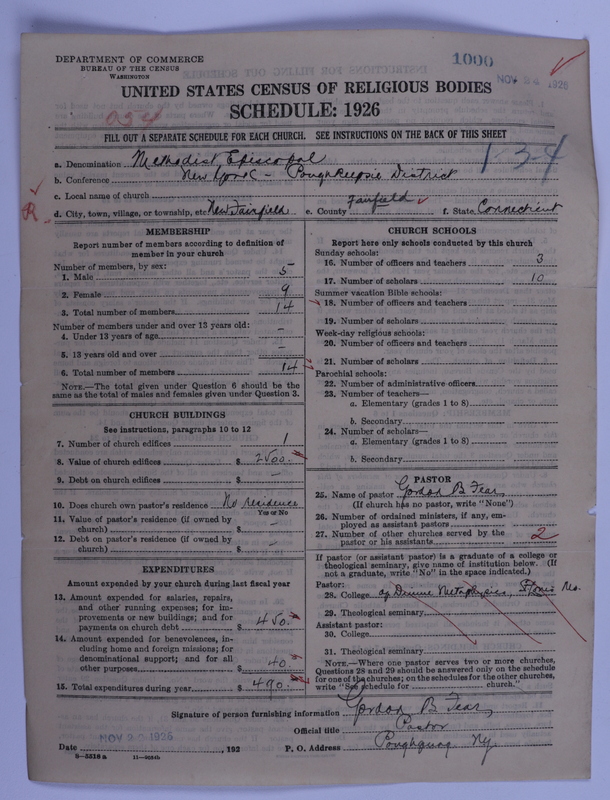 DEPARTMENT OF COMMERCE
BUREAU OF THE CENSUS
WASHINGTON
1000
NOV 24 1926
UNITED STATES CENSUS OF RELIGIOUS BODIES
SCHEDULE: 1926
FILL OUT A SEPARATE SCHEDULE FOR EACH CHURCH. SEE INSTRUCTIONS ON THE BACK OF THIS SHEET
1-3-4
a. Denomination Methodist Episcopal
b. Conference New York - Poughkeepsie District
c. Local name of church
R
d. City, town, village, or township, etc. New Fairfield e. County Fairfield f. State Connecticut
MEMBERSHIP
Report number of members according to definition of
member in your church
Number of members, by sex:
1. Male 5
2. Female 9
3. Total number of members 14
Number of members under and over 13 years old:
4. Under 13 years of age –
5. 13 years old and over –
6. Total number of members 14
NOTE.—The total given under Question 6 should be the
same as the total of males and females given under Question 3.
CHURCH BUILDINGS
See instructions, paragraphs 10 to 12
7. Number of church edifices 1
8. Value of church edifices $ 2500.
9. Debt on church edifices $ –
10. Does church own pastor's residence No residence
Yes or No
11. Value of pastor's residence (if owned by
church) $ –
12. Debt on pastor's residence (if owned by
church) $ –
EXPENDITURES
Amount expended by your church during last fiscal year
13. Amount expended for salaries, repairs,
and other running expenses; for im-
provements or new buildings; and for
payments on church debt $ 450.
14. Amount expended for benevolences, in-
cluding home and foreign missions; for
denominational support; and for all
other purposes $ 40.
15. Total expenditures during year $ 490.
CHURCH SCHOOLS
Report here only schools conducted by this church
Sunday schools:
16. Number of officers and teachers 3
17. Number of scholars 10
Summer vacation Bible schools:
18. Number of officers and teachers
19. Number of scholars
Week-day religious schools:
20. Number of officers and teachers
21. Number of scholars
Parochial schools:
22. Number of administrative officers
23. Number of teachers—
a. Elementary (grades 1 to 8)
b. Secondary
24. Number of scholars—
a. Elementary (grades 1 to 8)
b. Secondary
PASTOR
25. Name of pastor Gordon B Fear
(If church has no pastor, write "None")
26. Number of ordained ministers, if any, em-
ployed as assistant pastors
27. Number of other churches served by the
pastor or his assistants 2
If pastor (or assistant pastor) is a graduate of a college or
theological seminary, give name of institution below. (If
not a graduate, write "No" in the space indicated.)
Pastor:
28. College of Divine Metaphysics, Mo.
29. Theological seminary
Assistant pastor:
30. College
31. Theological seminary
NOTE.—Where one pastor serves two or more churches,
Questions 28 and 29 should be answered only on the schedule
for one of the churches; on the schedules for the other churches,
write "See schedule for church."
Signature of person furnishing information Gordon B Fear,
Official title Pastor
Date NOV 23 1926, 192 P. O. Address Poughquag Ny.
8-5518 a 11-9584b